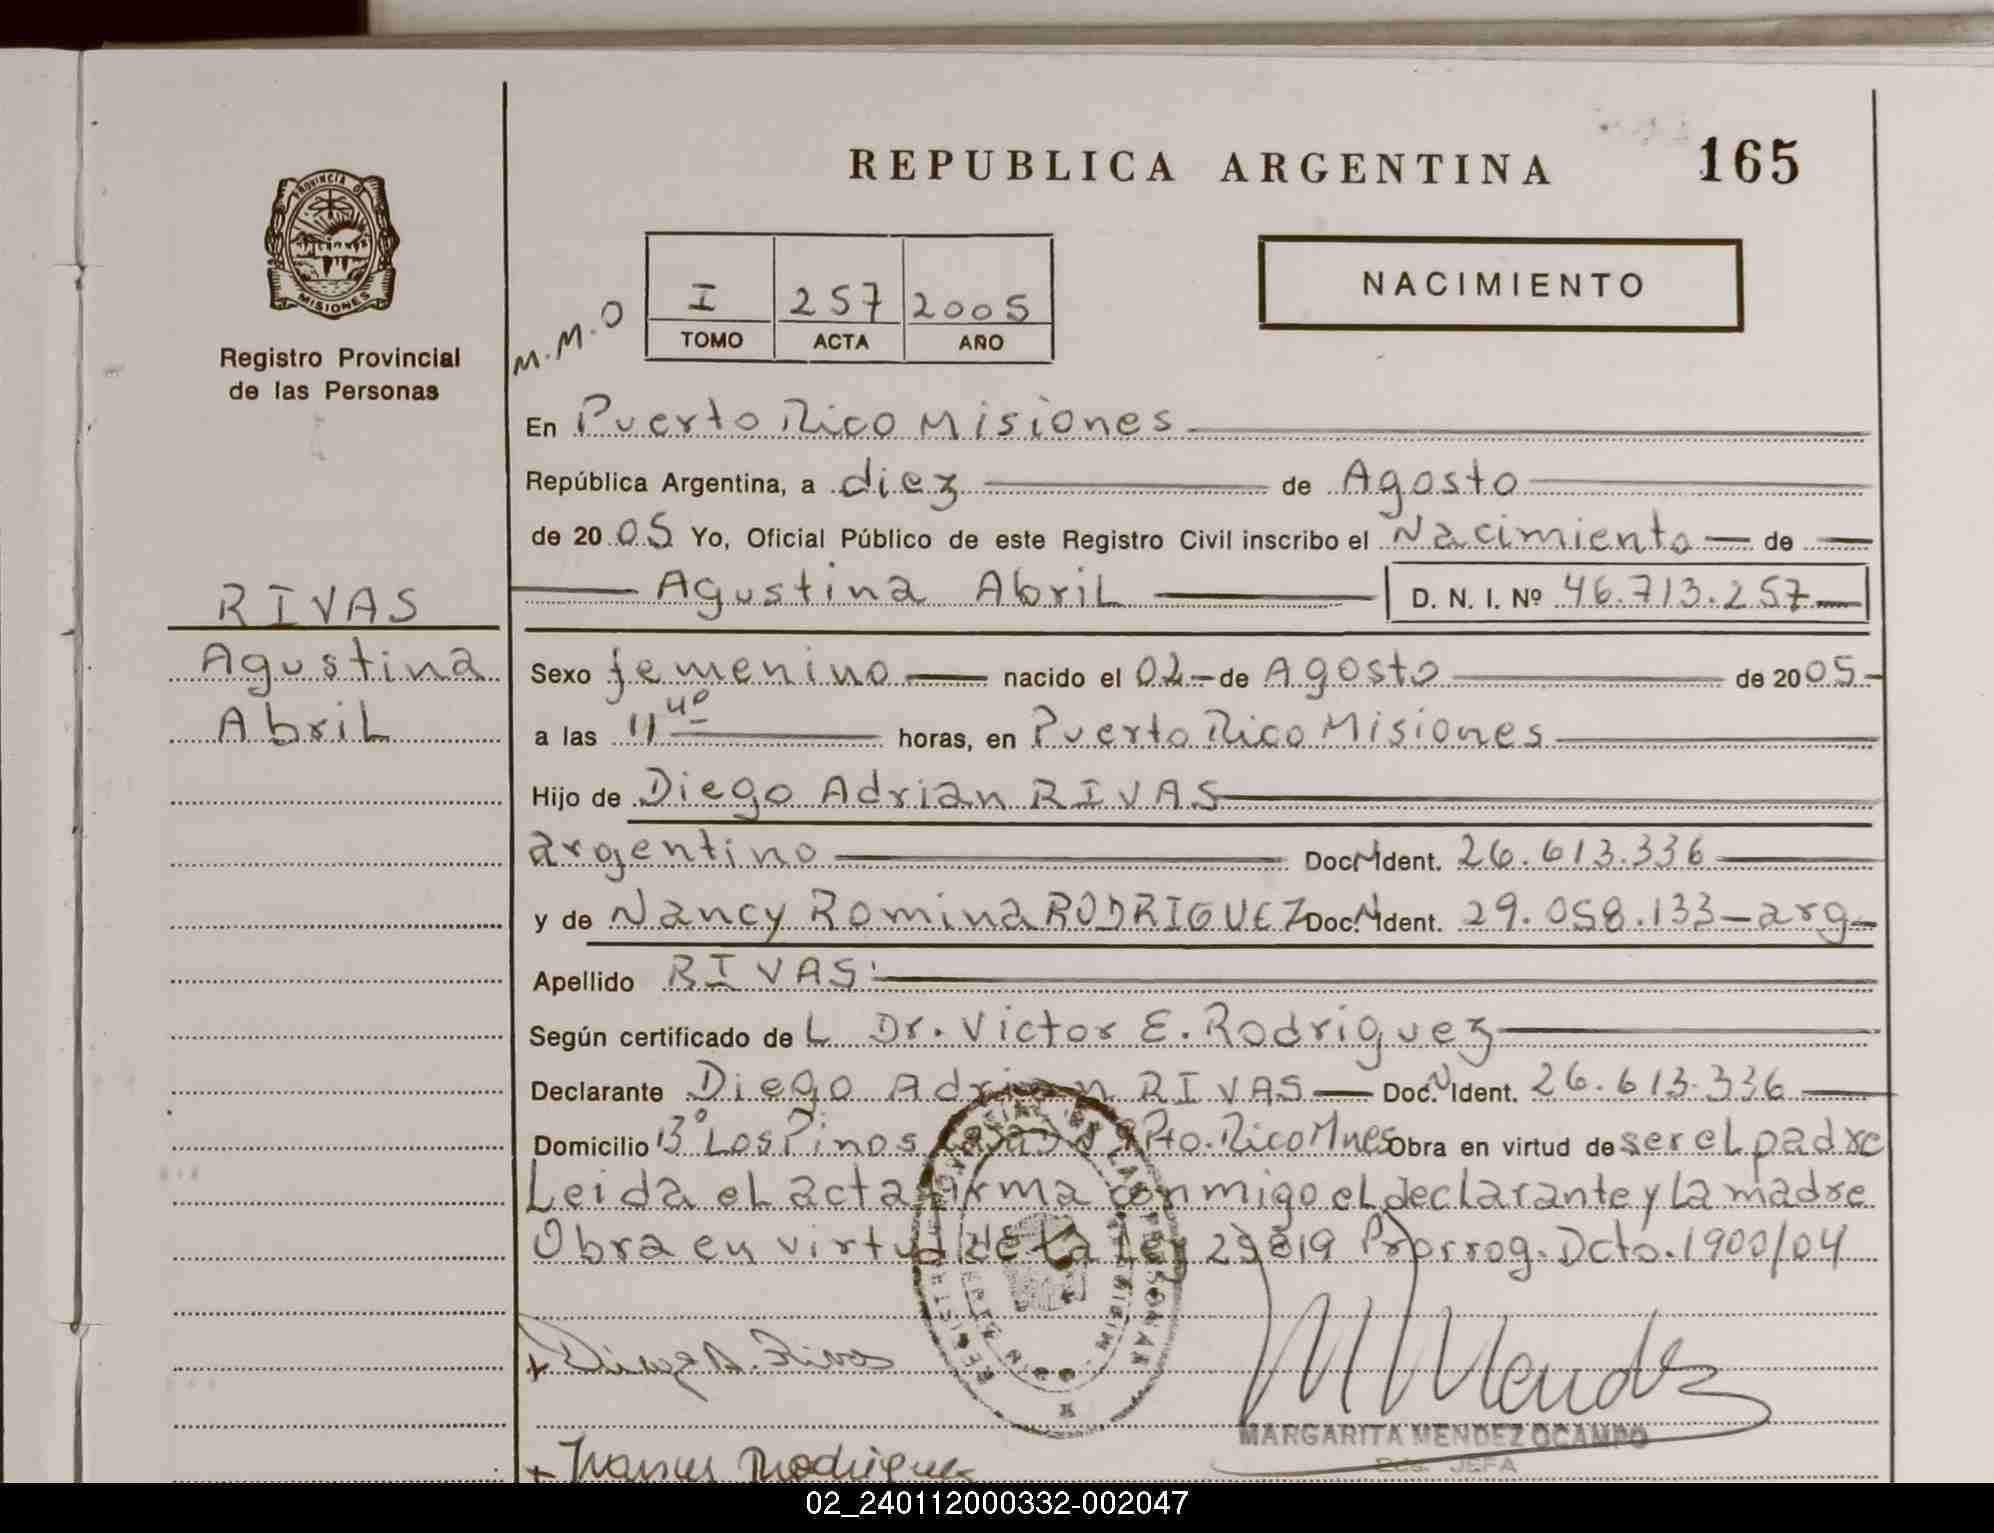 REPUBLICA ARGENTINA 165
PROVINCIA D
MISIONES
Registro Provincial
de las Personas
NACIMIENTO
I 257 2005
TOMO ACTA AÑO
M.M.O
En Puerto Rico Misiones
República Argentina, a diez de Agosto
de 2005 Yo, Oficial Público de este Registro Civil inscribo el Nacimiento de
Agustina Abril D. N. I. Nº 46.713.257
RIVAS
Agustina
Abril
Sexo femenino nacido el 02 de Agosto de 2005
a las 11 40 horas, en Puerto Rico Misiones
Hijo de Diego Adrian RIVAS
argentino Doc. N Ident. 26.613.336
y de Nancy Romina RODRIGUEZ Doc. N Ident. 29.058.133 - arg
Apellido RIVAS
Según certificado del Dr. Victor E. Rodriguez
Declarante Diego Adrian RIVAS Doc. N Ident. 26.613.336
Domicilio Bº Los Pinos Pto. Rico Mnes Obra en virtud de ser el padre
Leida el acta firma conmigo el declarante y la madre
Obra en virtud de la Ley 25819 Prorrog. Dcto. 1900/04
Diego A. Rivas
M Mendez
MARGARITA MENDEZ OCAMPO
JEFA
Rodriguez
02_240112000332-002047